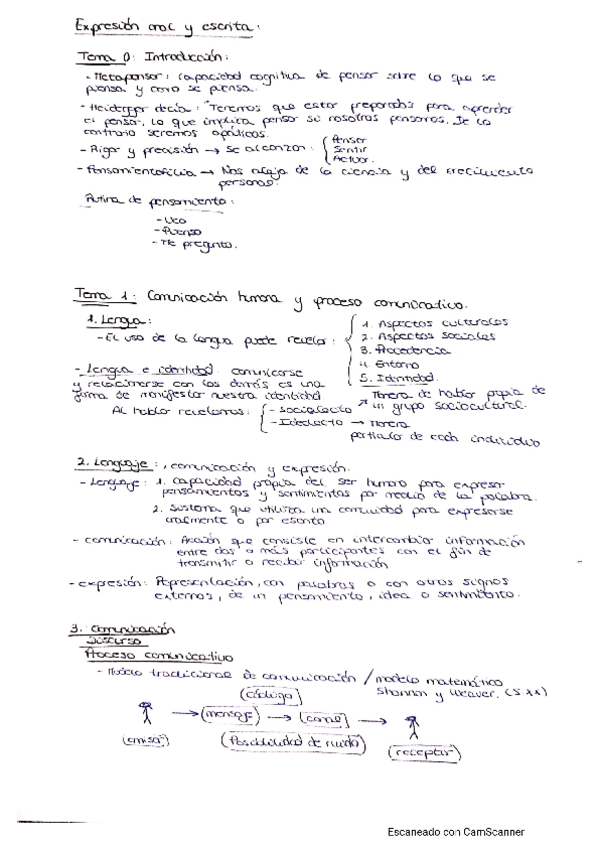 Expresión oral y escrita:
Tema 0: Introducción:
- Metapensar: capacidad cognitiva de pensar sobre lo que se
piensa y como se piensa.
- Heidegger decía: "Tenemos que estar preparados para aprender
el pensar, lo que implica pensar si nosotros pensamos. De lo
contrario seremos apáticos.
- Rigor y precisión → Se alcanzan: { Pensar
Sentir
Actuar.
- Pensamientofilia → Nos aleja de la ciencia y del crecimiento
personal.
Rutina de pensamiento:
- Veo
- Pienso
- Me pregunto.
Tema 1: Comunicación humana y proceso comunicativo.
1. Lengua:
- El uso de la lengua puede revelar: { 1. Aspectos culturales
2. Aspectos sociales
3. Procedencia
4. Entorno
5. Identidad.
- Lengua e identidad: comunicarse
y relacionarse con los demás es una
forma de manifestar nuestra identidad.
Al hablar revelamos: { - Sociolecto ↗ Manera de hablar propia de
un grupo sociocultural.
- Idiolecto → Manera
particular de cada individuo
2. Lenguaje:, comunicación y expresión.
- Lenguaje: 1. Capacidad propia del ser humano para expresar
pensamientos y sentimientos por medio de la palabra.
2. Sistema que utiliza una comunidad para expresarse
oralmente o por escrito
- comunicación: Acción que consiste en intercambiar información
entre dos o más participantes con el fin de
transmitir o recibir información
- expresión: Representación, con palabras o con otros signos
externos, de un pensamiento, idea o sentimiento.
3. Comunicación
Discurso
Proceso comunicativo
- Modelo tradicional de comunicación / modelo matemático
Shannon y Weaver. (S.XX)
(código)
→ (mensaje) → (canal) →
(emisor) (Posibilidad de ruido) (receptor)
Escaneado con CamScanner